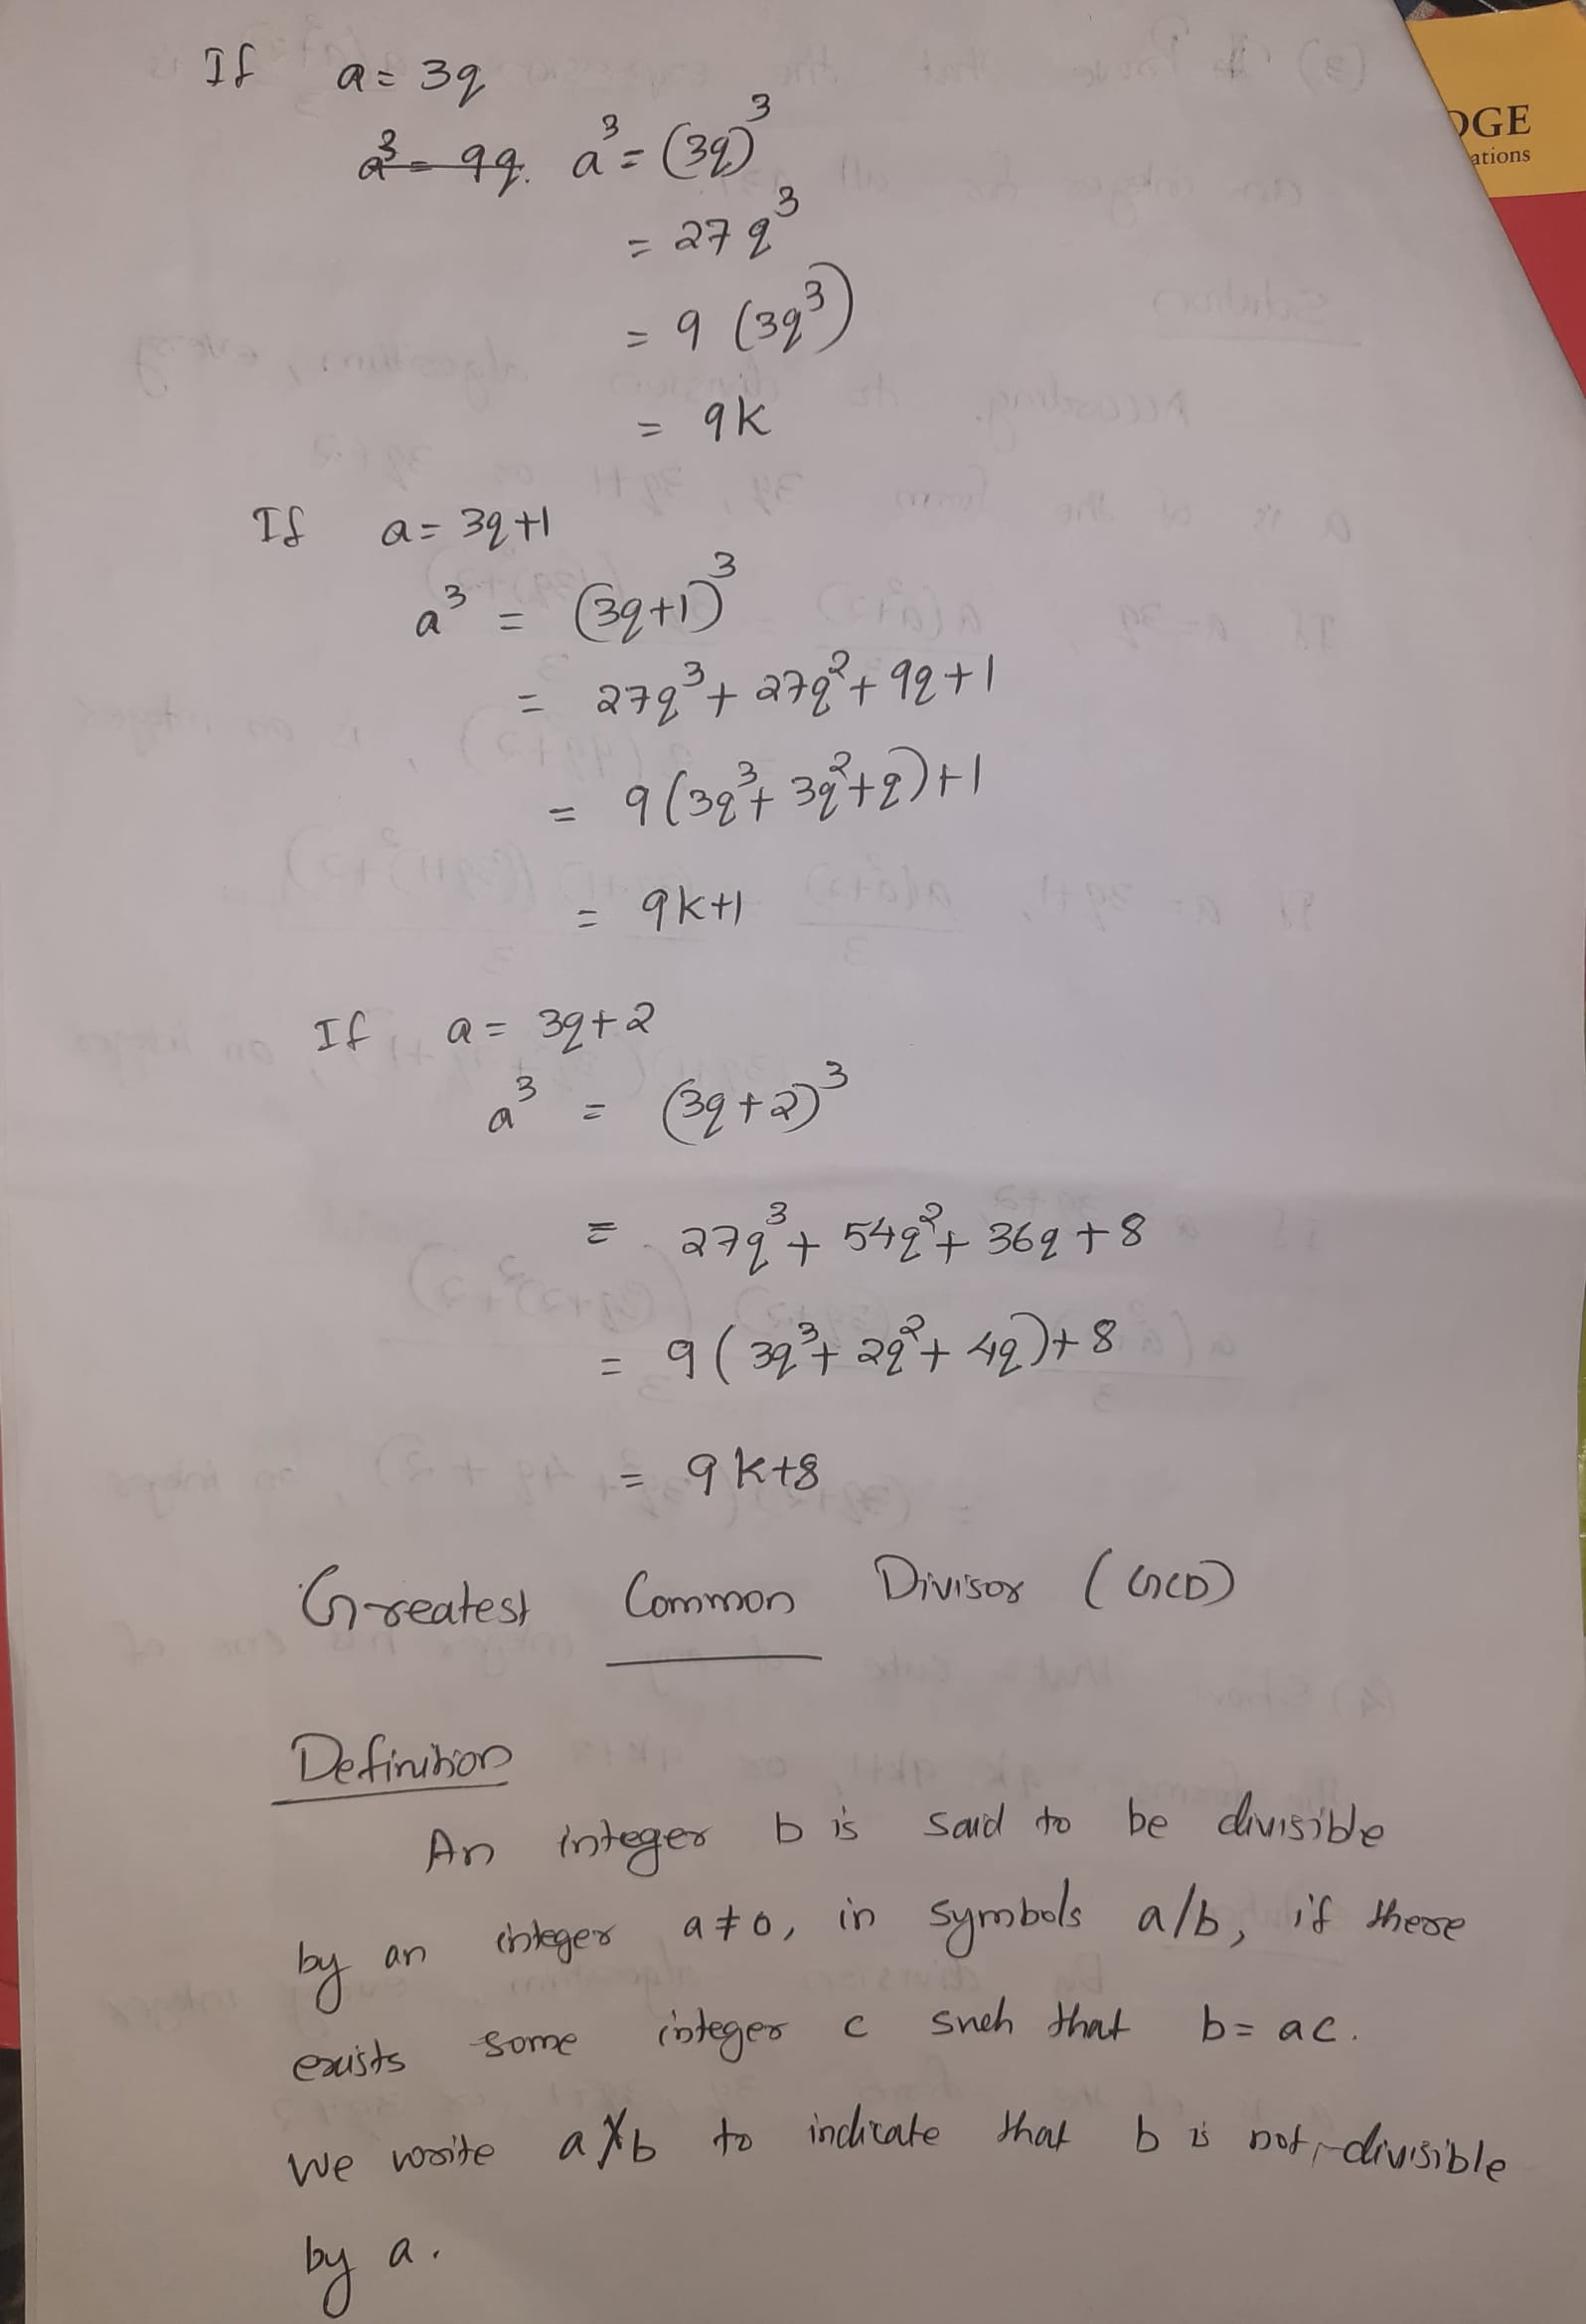 If a = 3q
a³ = 9q. a³ = (3q)³
= 27q³
= 9 (3q³)
= 9k
If a = 3q+1
a³ = (3q+1)³
= 27q³ + 27q² + 9q + 1
= 9(3q³ + 3q² + q) + 1
= 9k+1
If a = 3q+2
a³ = (3q+2)³
= 27q³ + 54q² + 36q + 8
= 9(3q³ + 2q² + 4q) + 8
= 9k+8
Greatest Common Divisor (GCD)
Definition
An integer b is said to be divisible
by an integer a ≠ 0, in symbols a/b, if there
exists some integer c such that b = ac.
We write a∤b to indicate that b is not divisible
by a.
DGE
ations